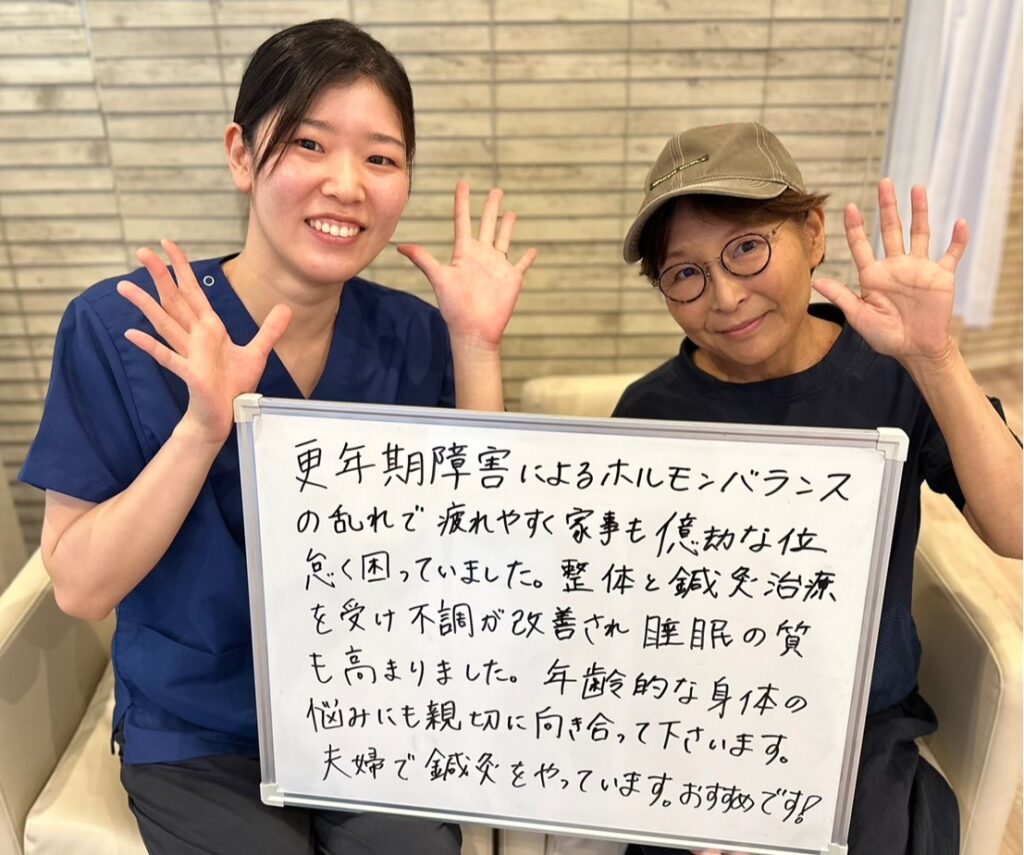 更年期障害によるホルモンバランス
の乱れで疲れやすく家事も億劫な位
怠く困っていました。整体と鍼灸治療
を受け不調が改善され睡眠の質
も高まりました。年齢的な身体の
悩みにも親切に向き合って下さいます。
夫婦で鍼灸をやっています。おすすめです!